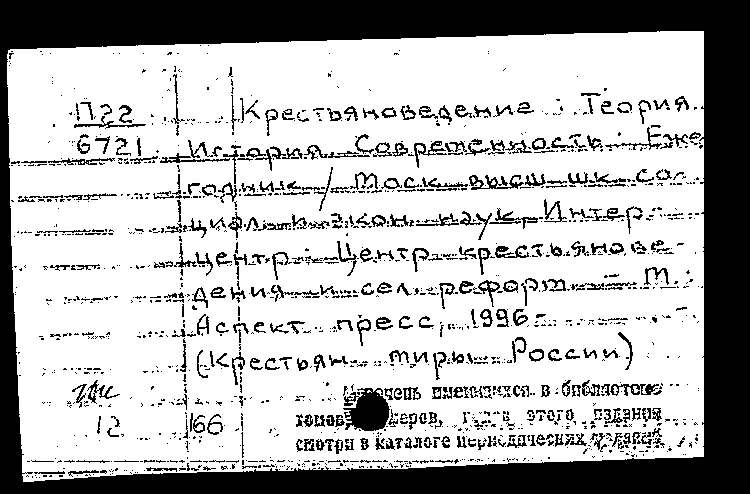 П22
6721
Крестьяноведение : Теория.
История. Современность : Еже
годник / Моск. высш. шк. со-
циал. и экон. наук, Интер-
центр. Центр крестьянове-
дения и сел. реформ. – М. :
Аспект пресс, 1996-
(Крестьян. миры России)
12 166
Перечень имеющихся в библиотеке
томов, номеров, годов этого издания
смотри в каталоге периодических изданий